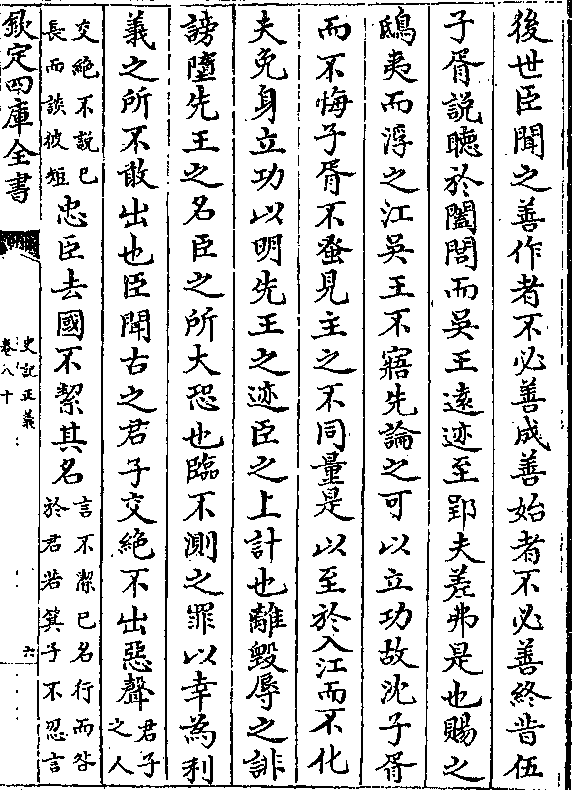 後世臣聞之善作者不必善成善始者不必善終昔伍
子胥說聽於闔閭而吳王遠迹至郢夫差弗是也賜之
鴟夷而浮之江吳王不寤先論之可以立功故沈子胥
而不悔子胥不蚤見主之不同量是以至於入江而不化
夫免身立功以明先王之迹臣之上計也離毀辱之誹
謗墮先王之名臣之所大恐也臨不測之罪以幸為利
義之所不敢出也臣聞古之君子交絕不出惡聲君子之人
交絕不說已長而談彼短忠臣去國不絜其名言不潔已名行而咎於君若箕子不忍言
欽定四庫全書
史記正義
卷八十
六